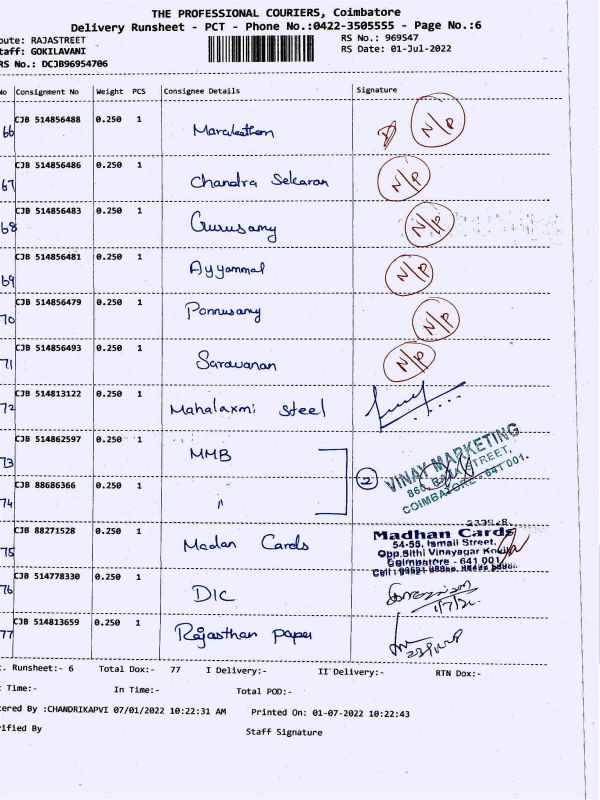 THE PROFESSIONAL COURIERS, Coimbatore
Delivery Runsheet - PCT - Phone No.:0422-3505555 - Page No.:6
oute: RAJASTREET RS No.: 969547
taff: GOKILAVANI RS Date: 01-Jul-2022
RS No.: DCJB96954706
No Consignment No Weight PCS Consignee Details Signature
66 CJB 514856488 0.250 1 N/P
67 CJB 514856486 0.250 1 Chandra Sekaran N/P
68 CJB 514856483 0.250 1 Gurusamy N/P
69 CJB 514856481 0.250 1 Ayyammal N/P
70 CJB 514856479 0.250 1 Ponnusamy N/P
71 CJB 514856493 0.250 1 Saravanan N/P
72 CJB 514813122 0.250 1 Mahalaxmi Steel
73 CJB 514862597 0.250 1 MMB
2
VINAY MARKETING
STREET,
COIMBATORE - 641 001.
74 CJB 88686366 0.250 1 "
75 CJB 88271528 0.250 1 Madan Cards
Madhan Cards
54-55, Ismail Street,
Opp.Sithi Vinayagar Kovil
Coimbatore - 641 001
Cell :
76 CJB 514778330 0.250 1 DIC
77 CJB 514813659 0.250 1 Rajasthan paper
. Runsheet:- 6 Total Dox:- 77 I Delivery:- II Delivery:- RTN Dox:-
Time:- In Time:- Total POD:-
tered By :CHANDRIKAPVI 07/01/2022 10:22:31 AM Printed On: 01-07-2022 10:22:43
rified By Staff Signature